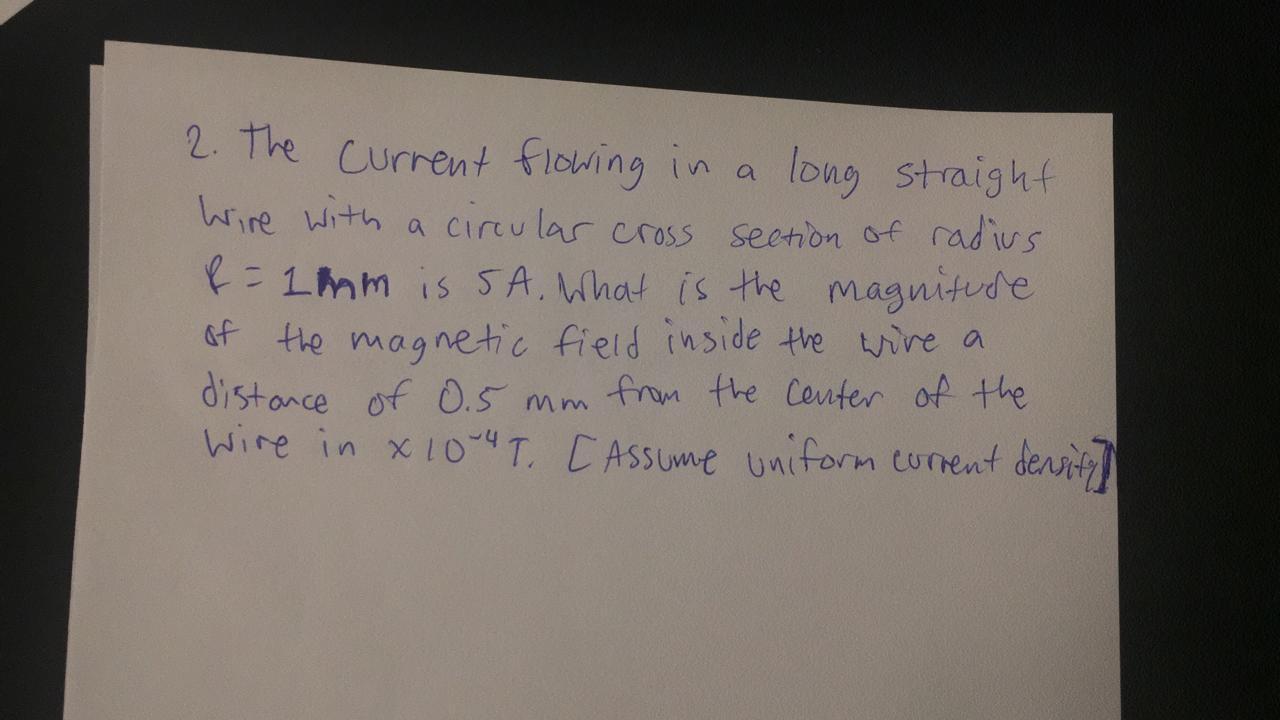 2. The current flowing in a long straight
wire with a circular cross section of radius
R = 1mm is 5A. What is the magnitude
of the magnetic field inside the wire a
distance of 0.5 mm from the center of the
wire in x10⁻⁴T. [Assume uniform current density]